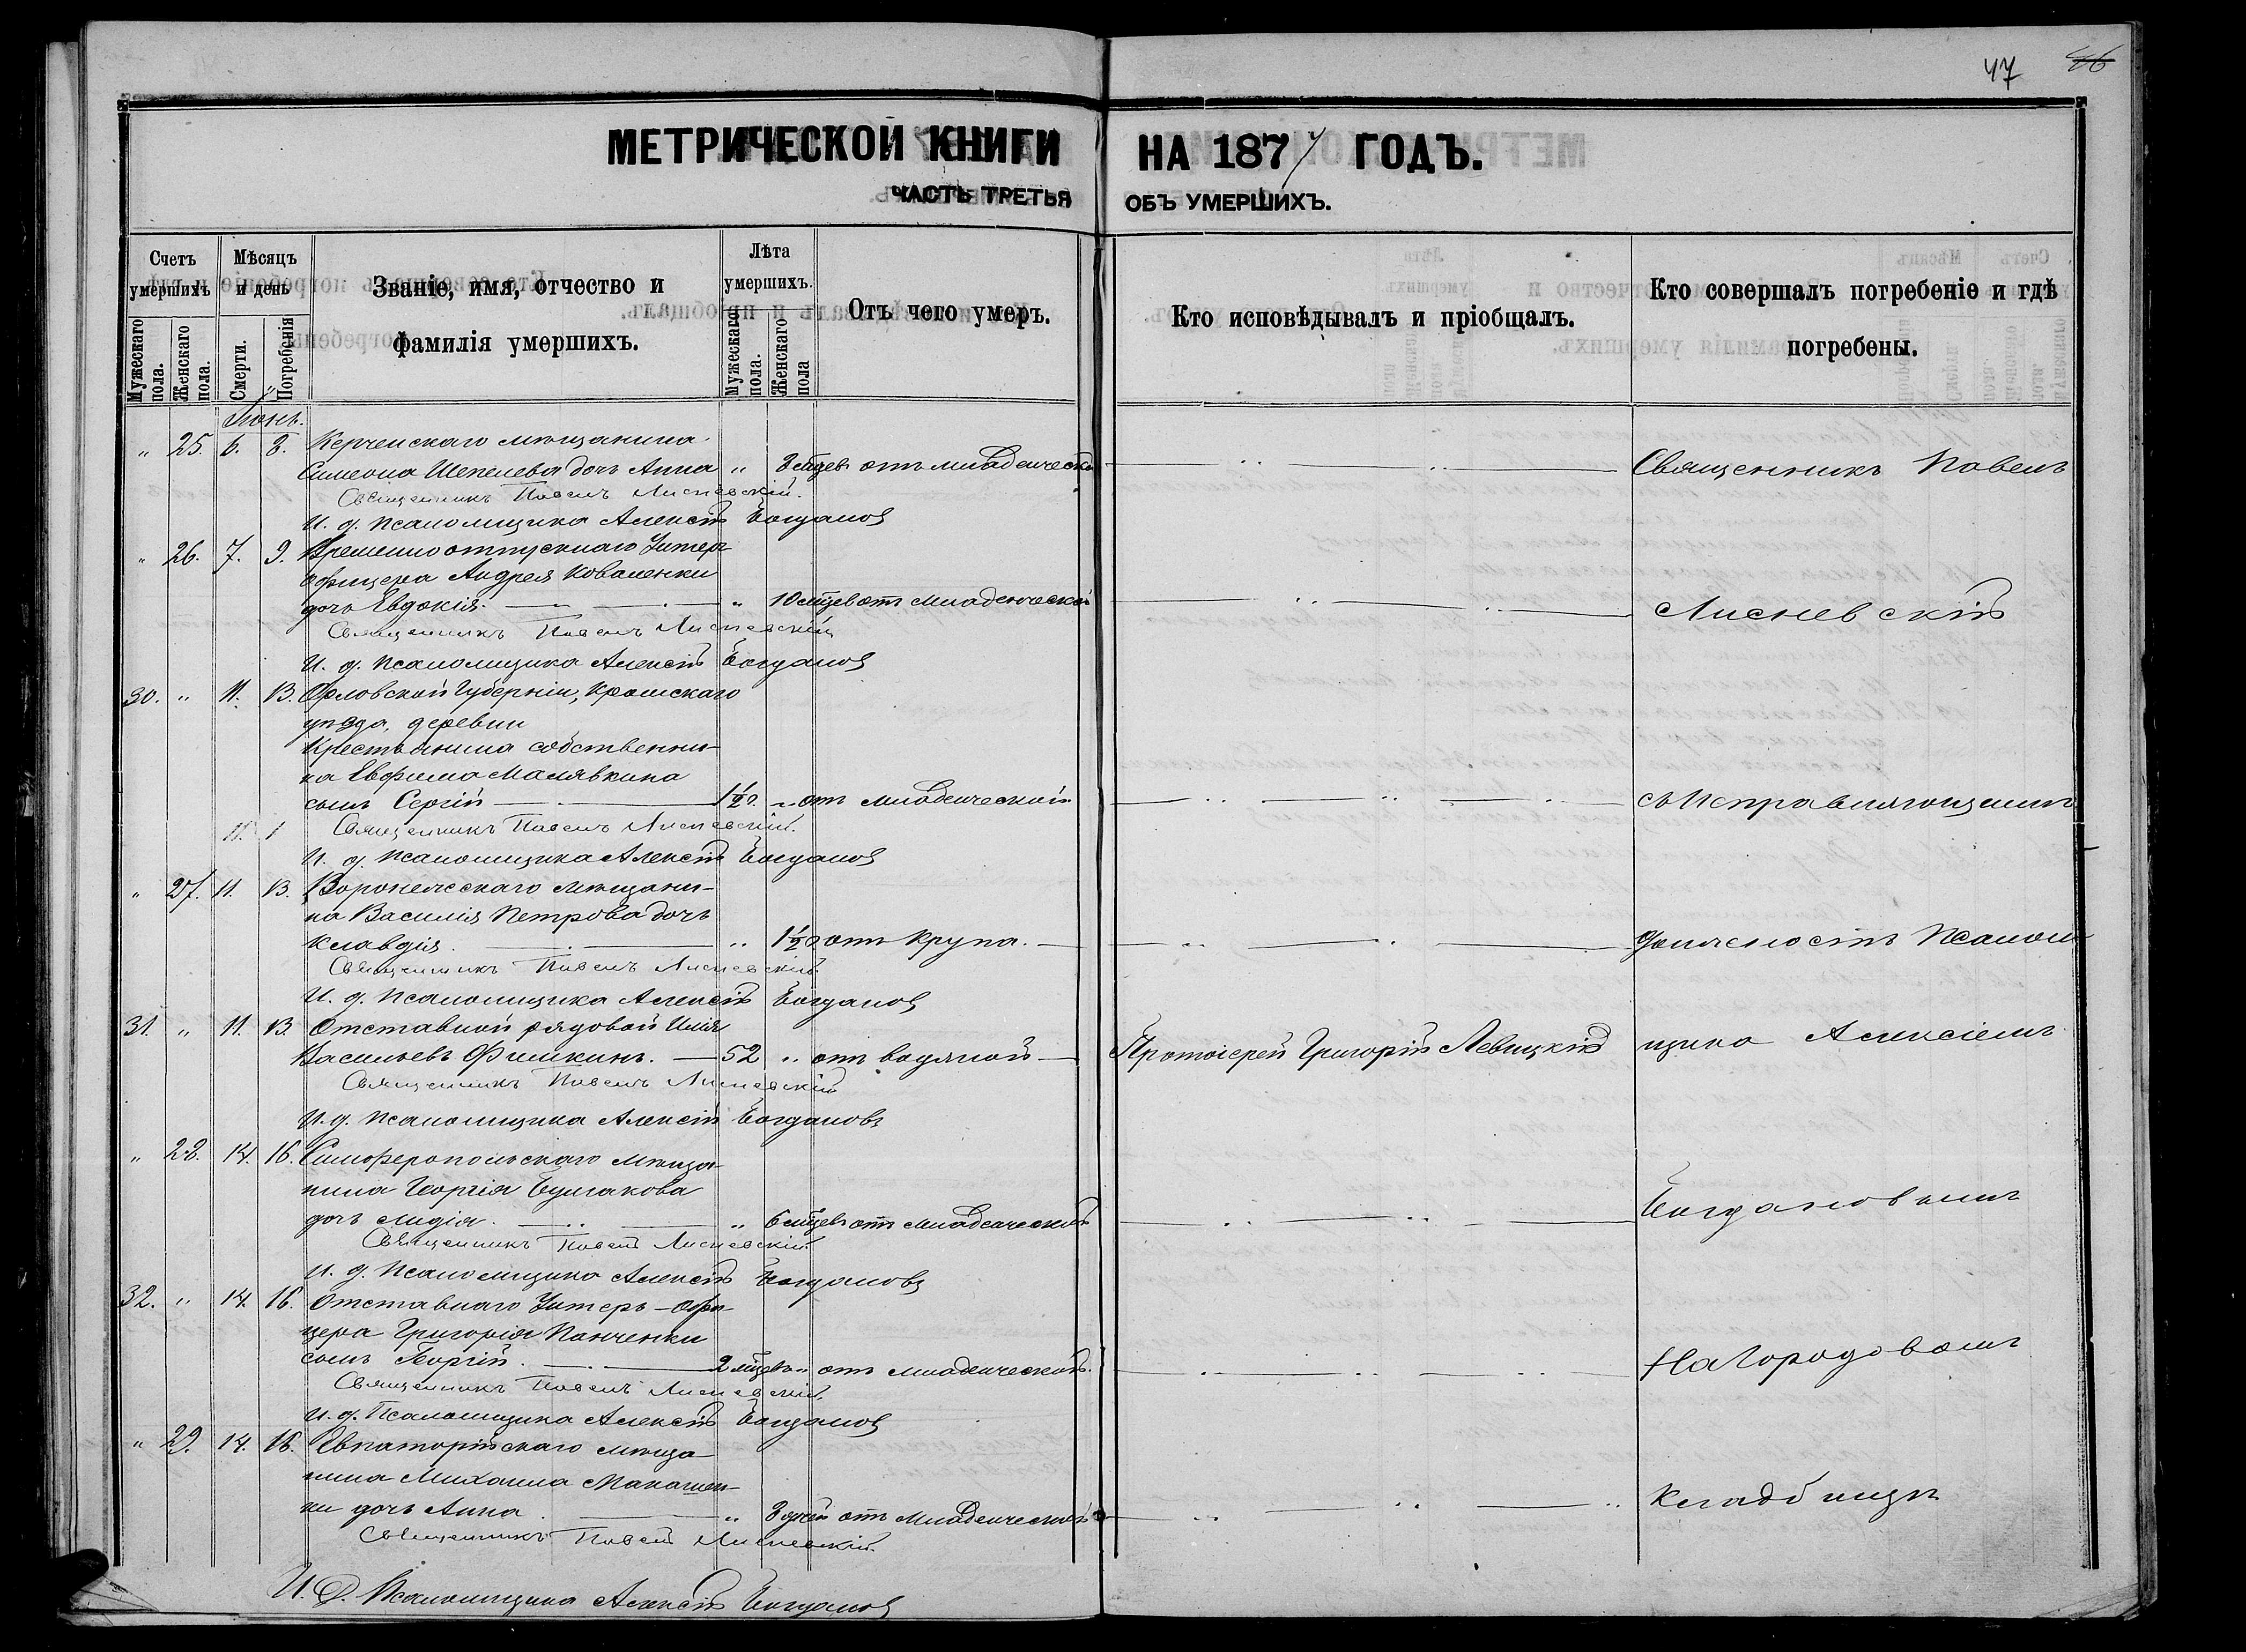 47 46
МЕТРИЧЕСКОЙ КНИГИ НА 1877 ГОДЪ.
ЧАСТЬ ТРЕТЬЯ ОБЪ УМЕРШИХЪ.
Счетъ умершихъ
Мужескаго пола.
Женскаго пола.
Мѣсяцъ и день
Смерти.
Погребенія
Званіе, имя, отчество и
фамилія умершихъ.
Лѣта умершихъ.
Мужескаго пола.
Женскаго пола
Отъ чего умеръ.
Кто исповѣдывалъ и пріобщалъ.
Кто совершалъ погребеніе и гдѣ
погребены.
Іюнь.
" 25. 6. 8. Керченскаго мѣщанина
Симеона Шепелева дочь Анна " 3 мѣцев отъ младенческой
Священникъ Павелъ Лисневскій.
И. д. псаломщика Алексій Богданов
" 26. 7. 9. Временноотпускнаго Унтеръ
офицера Андрея Коваленки
дочь Евдокія. " 10 мѣцев отъ младенческой
Священникъ Павелъ Лисневскій
И. д. псаломщика Алексій Богданов
30. " 11. 13. Орловской Губерніи, Кромскаго
уѣзда, деревни
Крестьянина собственни-
ка Евфима Малявкина
сынъ Сергій 1½ " отъ младенческой
11. 1 Священникъ Павелъ Лисневскій.
И. д. псаломщика Алексій Богданов
" 27. 11. 13. Воронежскаго мѣщани-
на Василія Петрова дочь
Клавдія. " 1½ отъ крупа.
Священникъ Павелъ Лисневскій
И. д. псаломщика Алексій Богданов
31. " 11. 13. Отставной рядовой Илія
Васильевъ Фишкинъ. 52 " отъ водяной
Священникъ Павелъ Лисневскій
И. д. псаломщика Алексій Богдановъ
" 28. 14. 16. Симферопольскаго мѣща-
нина Георгія Булгакова
дочь Лидія. " 6 мѣцев отъ младенческой
Священникъ Павелъ Лисневскій.
И. д. псаломщика Алексій Богдановъ
32. " 14. 16. Отставнаго Унтеръ-офи-
цера Григорія Панченки
сынъ Георгій. 2 мѣцев " отъ младенческой.
Священникъ Павелъ Лисневскій.
И. д. Псаломщика Алексій Богданов
" 29. 14. 16. Евпаторійскаго мѣща
нина Михаила Макашен-
ки дочь Анна " 3 дней отъ младенческой
Священникъ Павелъ Лисневскій.
И. Д. Псаломщика Алексій Богданов
Протоіерей Григорій Левицкій
Священникъ Павелъ
Лисневскій
съ Исправляющимъ
должность Псалом-
щика Алексіемъ
Богдановымъ
На Городовомъ
Кладбищѣ